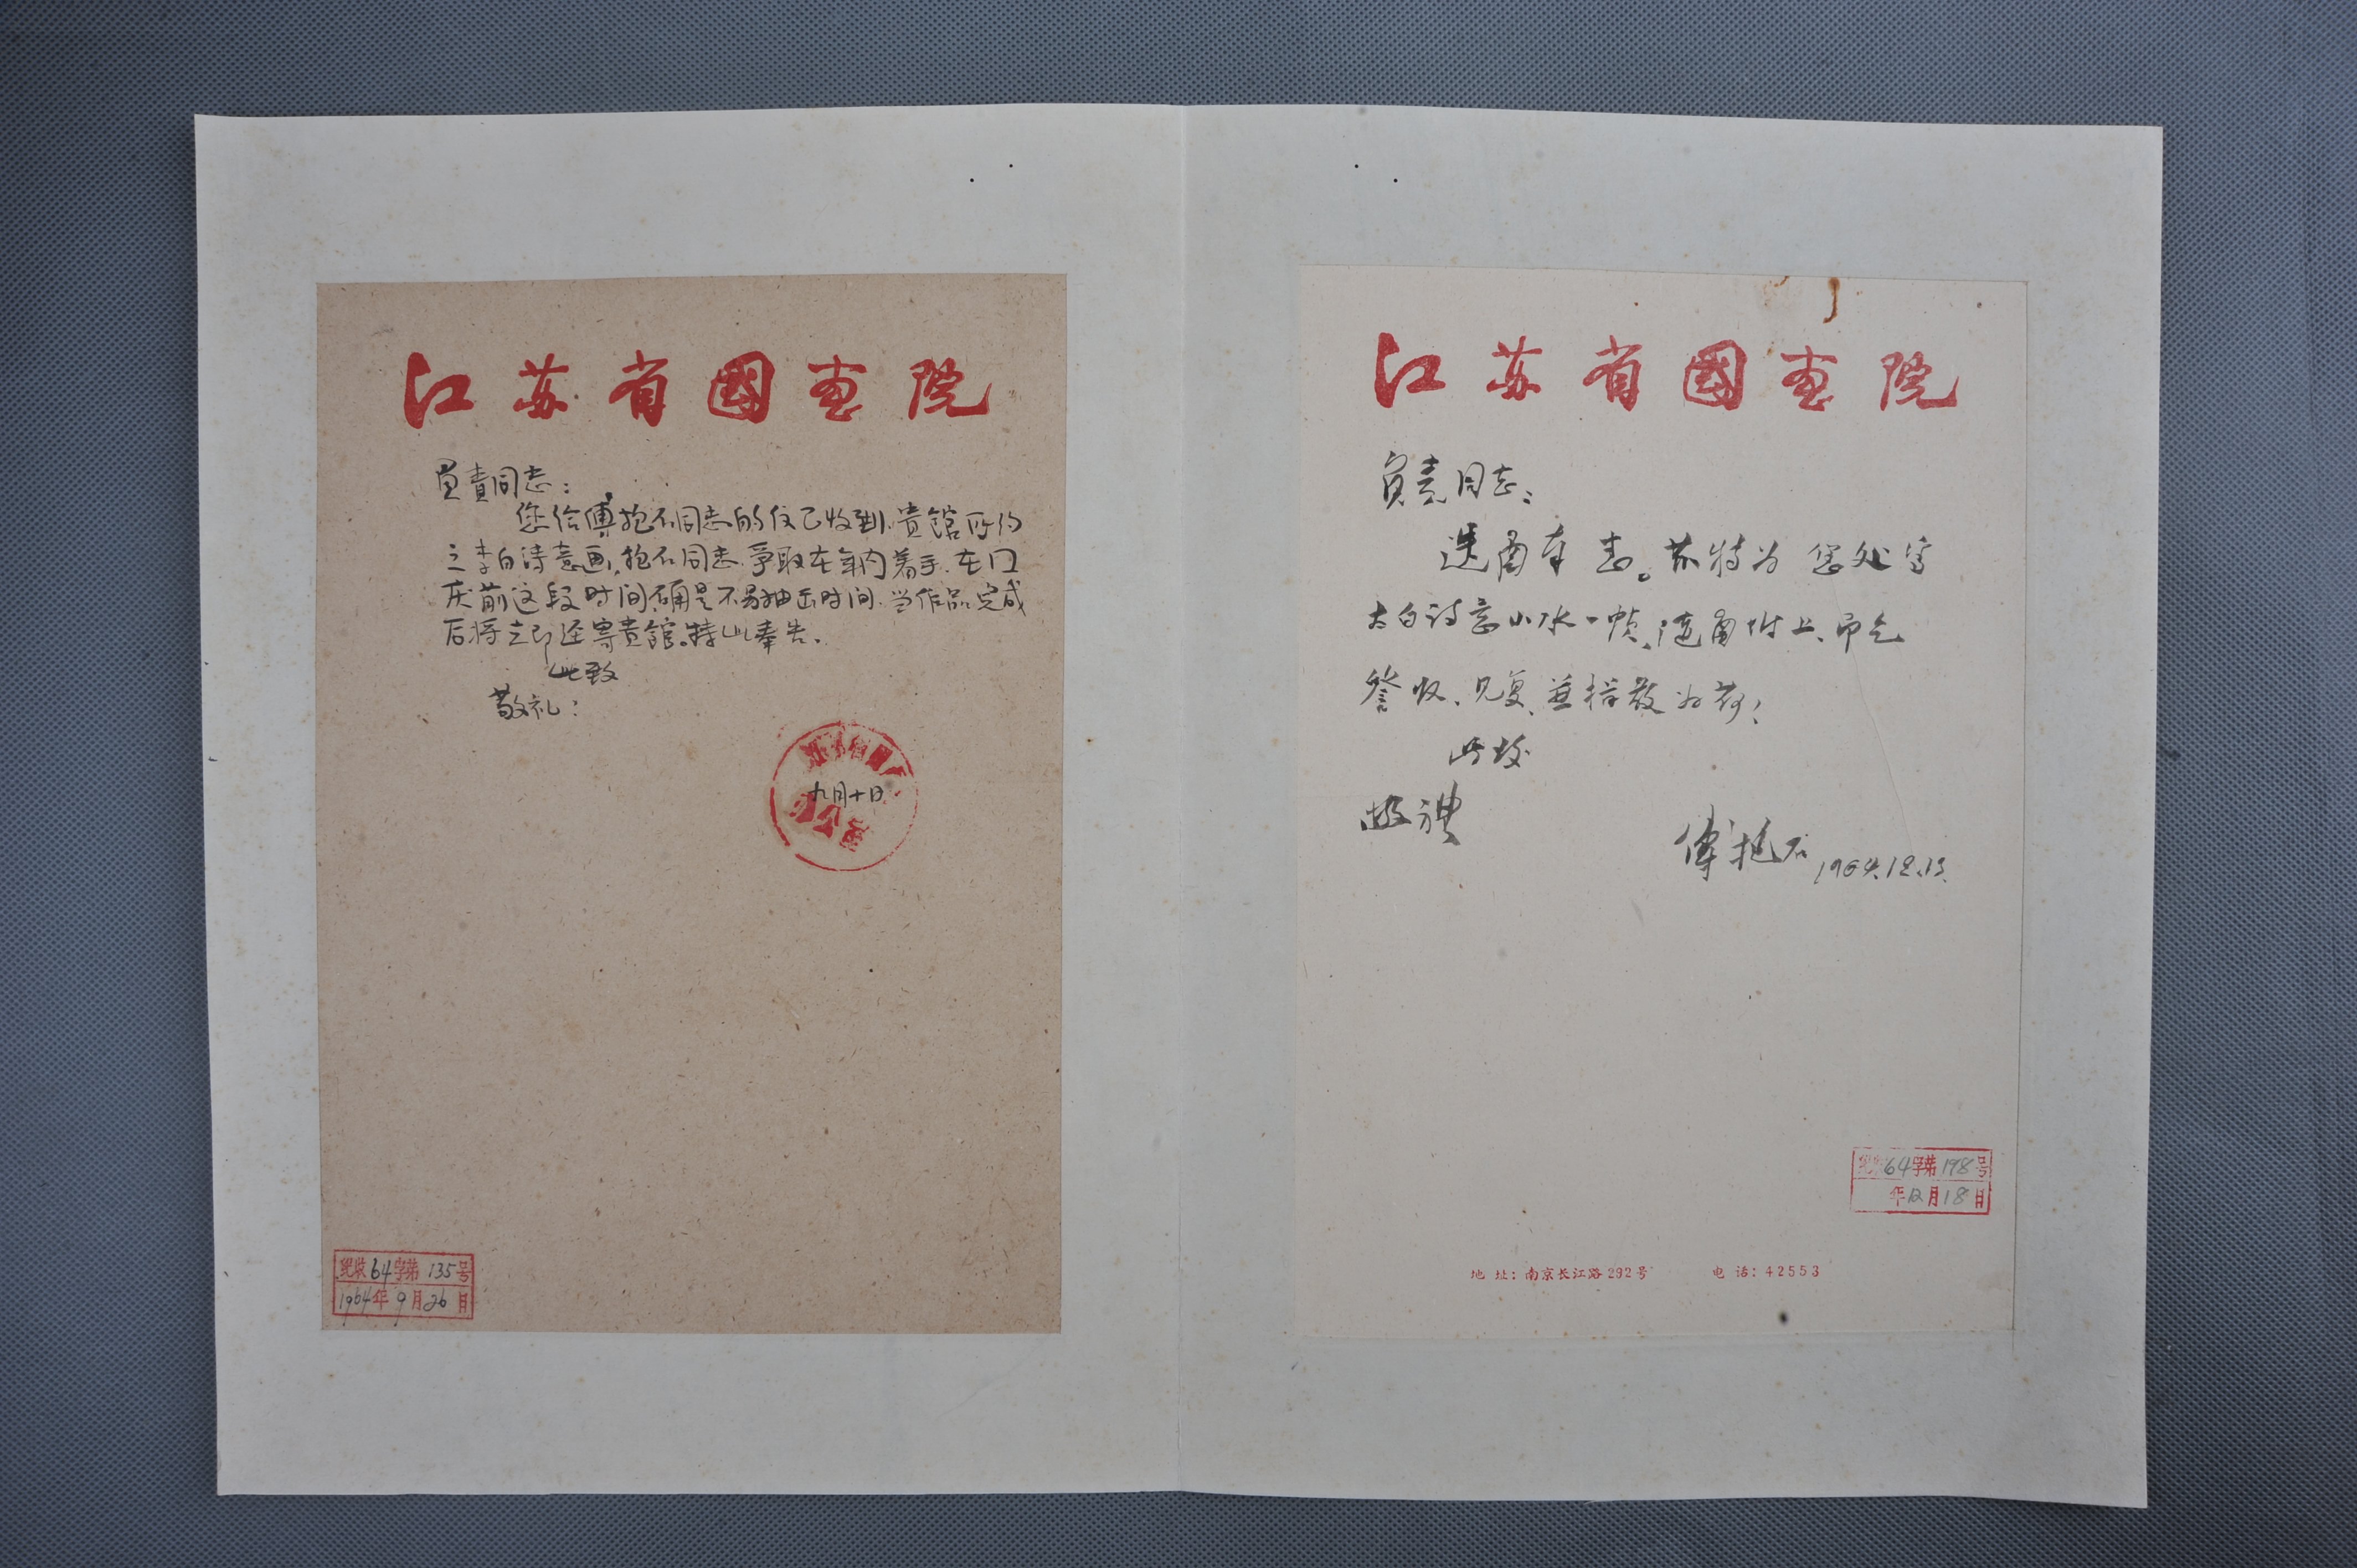 江苏省國画院
负责同志：
您给傅抱石同志的信已收到，贵馆所约
之李白诗意画，抱石同志争取在年内着手，在国
庆前这段时间确是不易抽出时间，当作品完成
后将立即迳寄贵馆。特此奉告。
此致
敬礼！
九月十日
收64字第135号
1964年9月26日
江苏省國画院
负责同志：
迭函奉悉。兹特为您处写
太白诗意山水一帧，随函附上，即乞
詧收、见复、並指教为荷！
此致
敬礼
傅抱石 1964.12.13.
64字第198号
年12月18日
地址：南京长江路292号 电话：42553